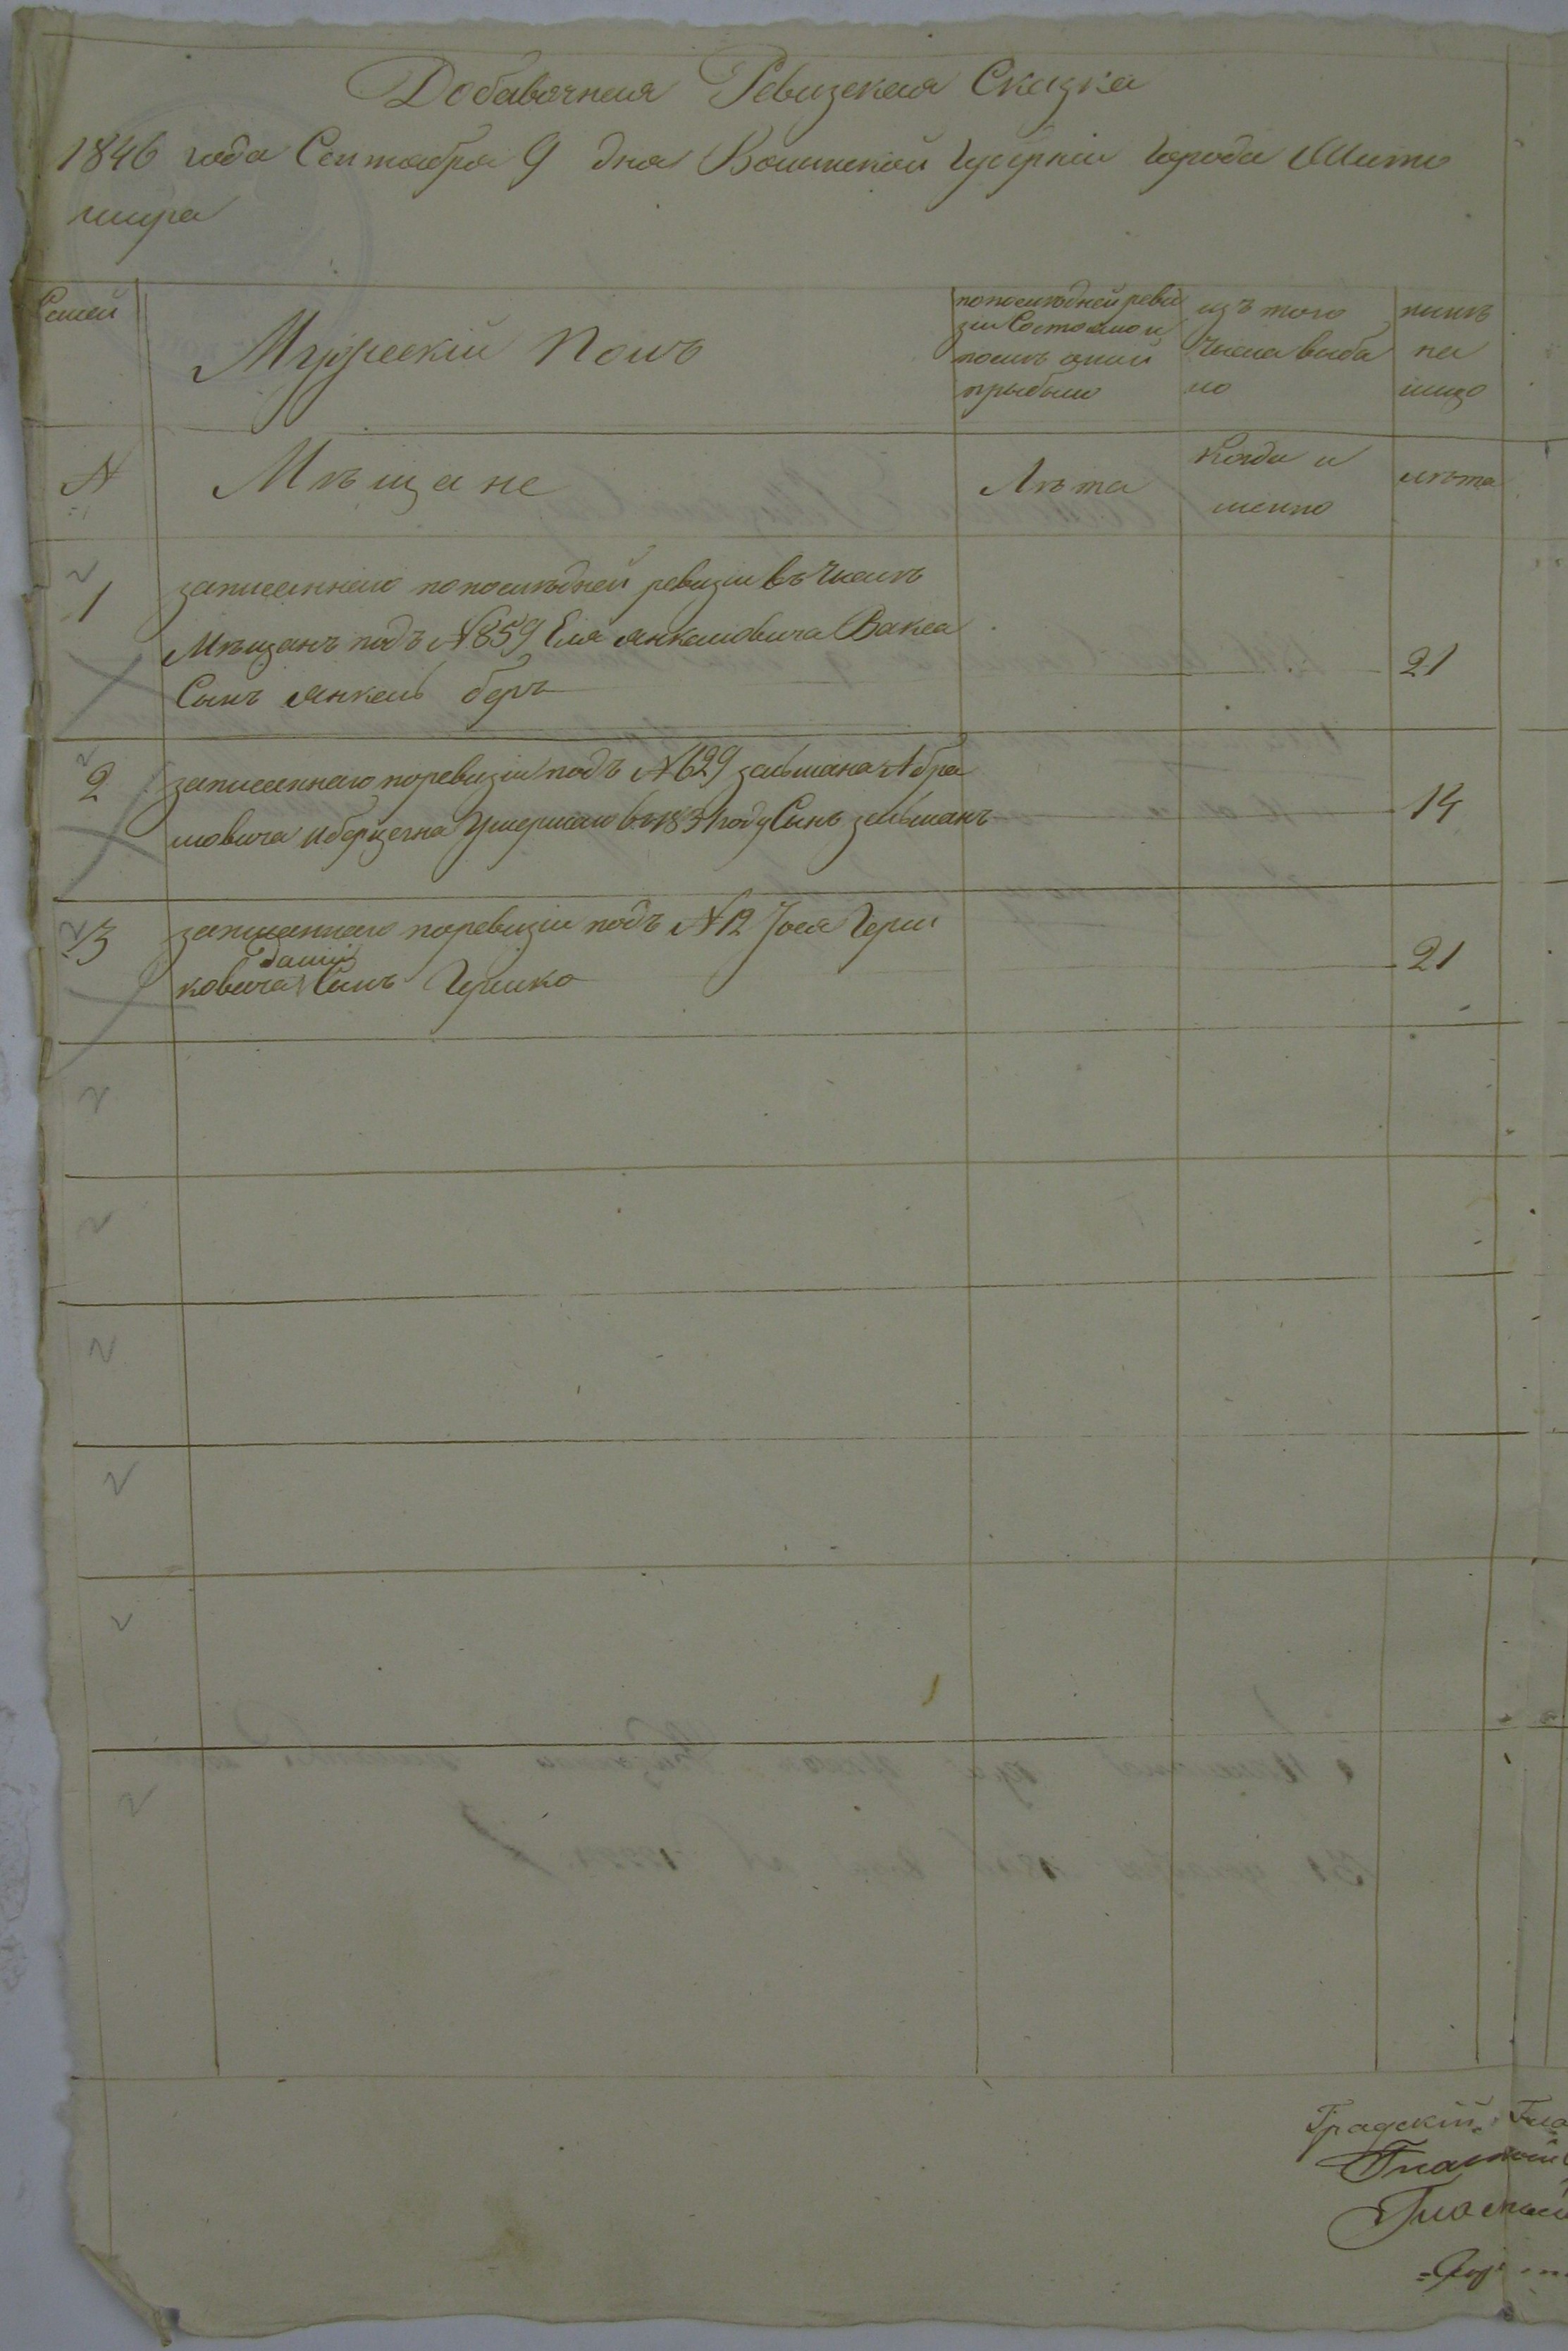 Добавочная Ревизская Сказка
1846 года Сентября 9 дня Волынской Губерніи Города Жито
мира
Семей
Мужескій Полъ
по последней реви
зіи Состояло и
после оной
прыбыло
изъ того
Числа выбы
ло
ныне
на
лицо
№
Мѣщане
Лѣта
Когда и
менно
лѣта
1
записаннаго по последней ревизіи въ Числѣ
Мѣщанъ подъ №859 Еля Янкелювича Вакса
Сынъ Янкель беръ
21
2
записаннаго по ревизіи подъ №629 зальмана Абра
мовича Умершаго въ 1831 году Сынъ зельманъ
14
3
записаннаго по ревизіи подъ №12 Іося Герш
ковича Сынъ Гершко
21
Градскій
Гласный
Гласный